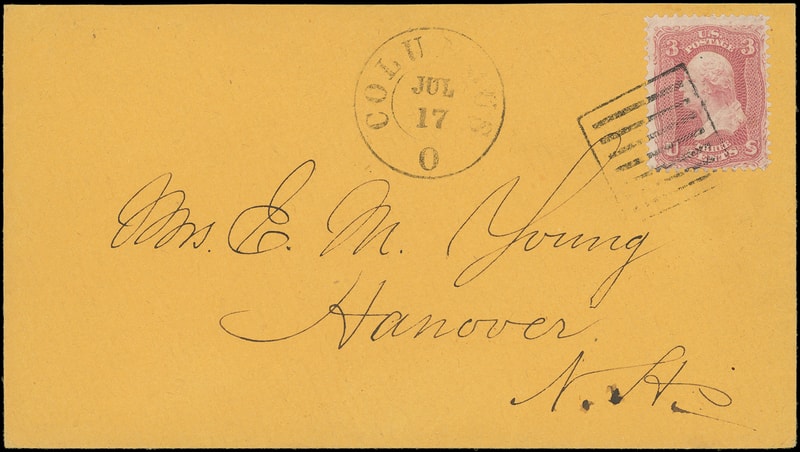 3 U.S. 3
POSTAGE
THREE
CENTS
U S
COLUMBUS
JUL
17
O
Mrs. E. M. Young
Hanover
N. H.